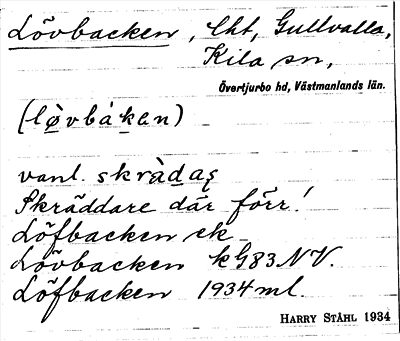 Lövbacken, lht, Gullvalla,
Kila sn,
Övertjurbo hd, Västmanlands län.
(lø̀vbákɘn)
vanl. skrä̀das
Skräddare där förr!
Löfbacken ek
Lövbacken kG83NV.
Löfbacken 1934 ml.
HARRY STÅHL 1934